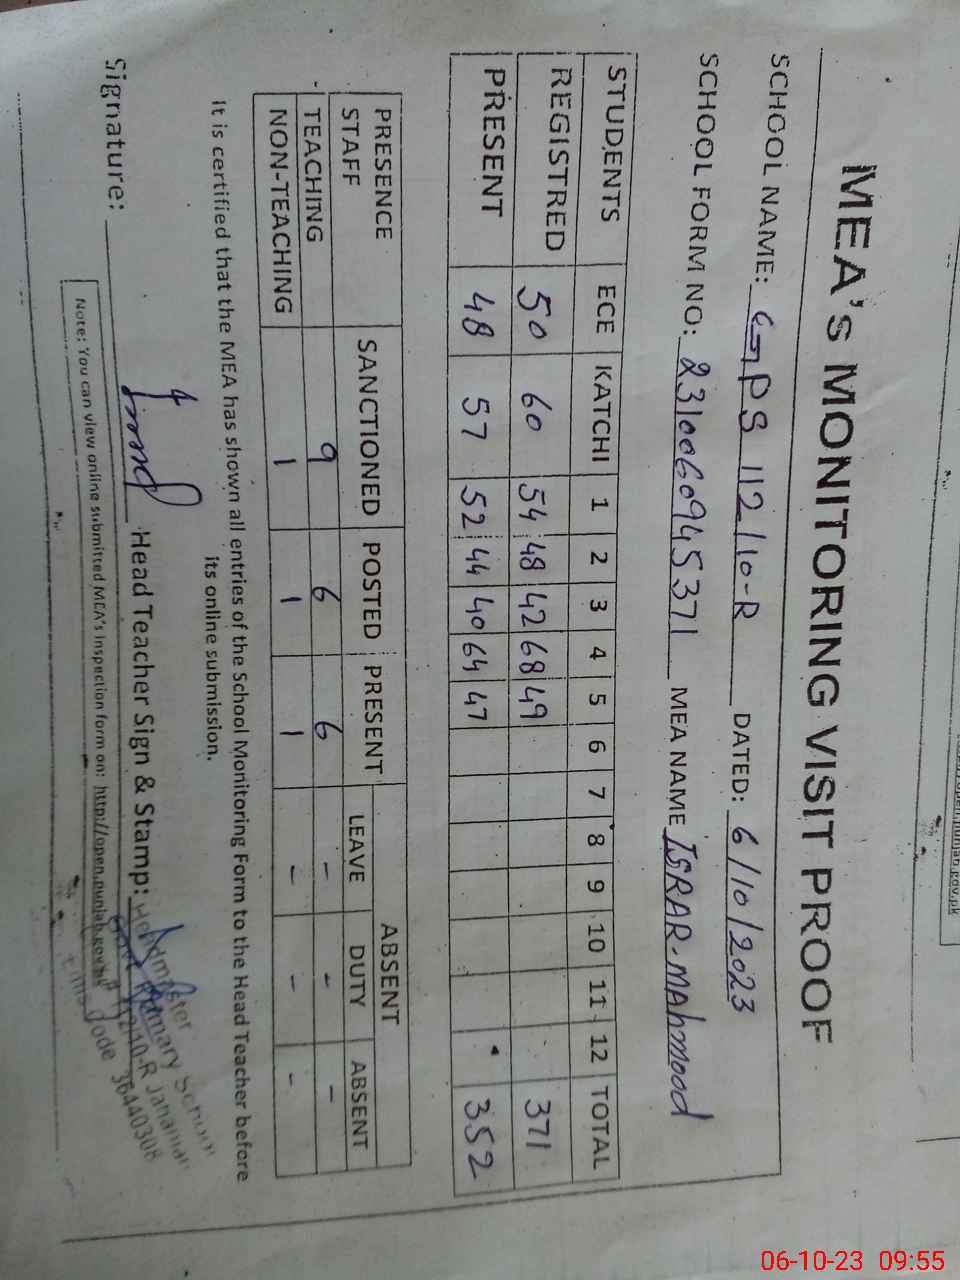 open.punjab.gov.pk
MEA's MONITORING VISIT PROOF
SCHOOL NAME: GPS 112/10-R DATED: 6/10/2023
SCHOOL FORM NO: 2310060945371 MEA NAME ISRAR.MAHMOOD
STUDENTS ECE KATCHI 1 2 3 4 5 6 7 8 9 10 11 12 TOTAL
REGISTRED 50 60 54 48 42 68 49 371
PRESENT 48 57 52 44 40 64 47 352
PRESENCE STAFF SANCTIONED POSTED PRESENT ABSENT
LEAVE DUTY ABSENT
TEACHING 9 6 6 - - -
NON-TEACHING 1 1 1 - - -
It is certified that the MEA has shown all entries of the School Monitoring Form to the Head Teacher before
its online submission.
Signature: Head Teacher Sign & Stamp:
Headmaster
Govt Primary School
112/10-R Jahanian
Emis Code 36440308
Note: You can view online submitted MEA's inspection form on: http://open.punjab.gov.pk
06-10-23 09:55